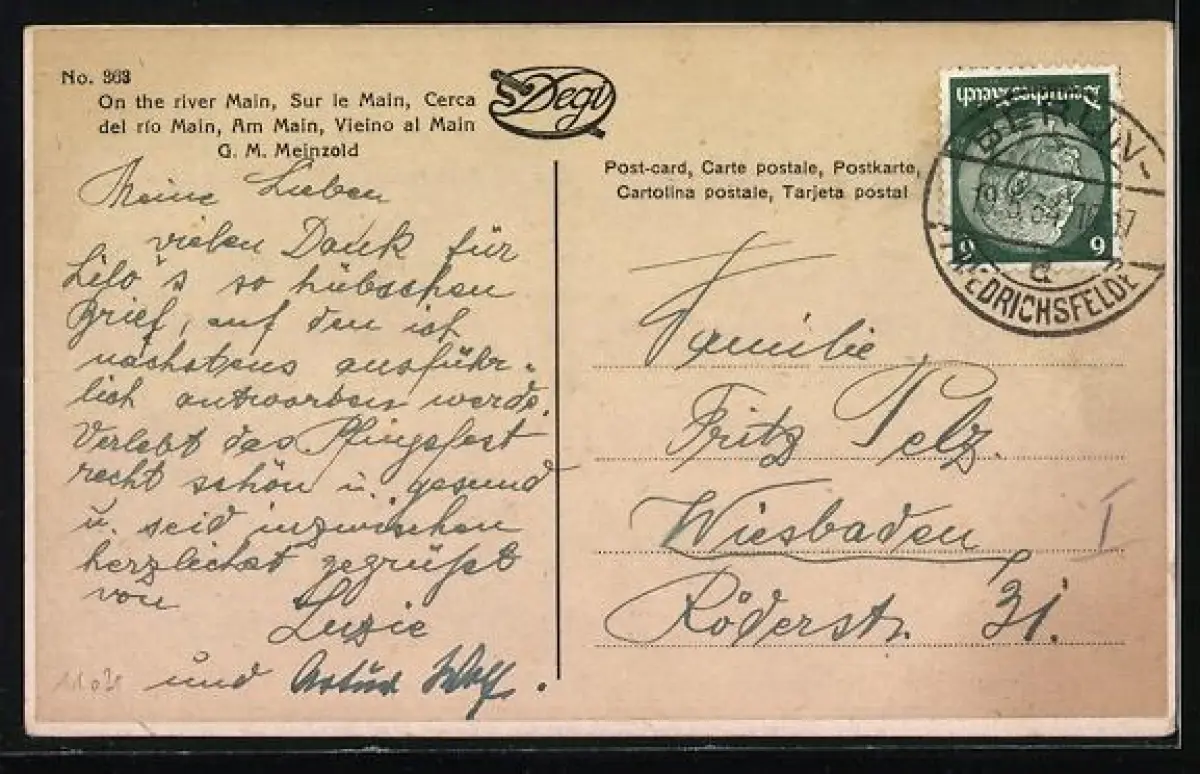 No. 363
On the river Main, Sur le Main, Cerca
del río Main, Am Main, Vieino al Main
G. M. Meinzold
Degi
Post-card, Carte postale, Postkarte,
Cartolina postale, Tarjeta postal
Deutsches Reich
6 6
BERLIN-
FRIEDRICHSFELDE
19.5.34
a
Meine Lieben
vielen Dank für
Lilo's so hübschen
Brief, auf den ich
nächstens ausführ-
lich antworten werde.
Verlebt das Pfingsfest
recht schön u. gesund
u. seid inzwischen
herzlichst gegrüßt
von
Luzie
und Artur Wolf.
Familie
Fritz Pelz.
Wiesbaden
Röderstr. 31.
I